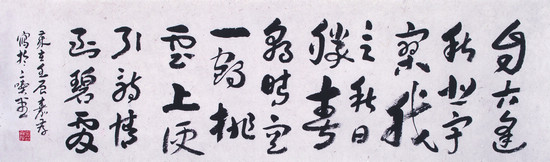 自古逢
秋悲寂
寥我
言秋日
勝春
朝晴空
一鶴排
雲上便
引詩情
到碧霄